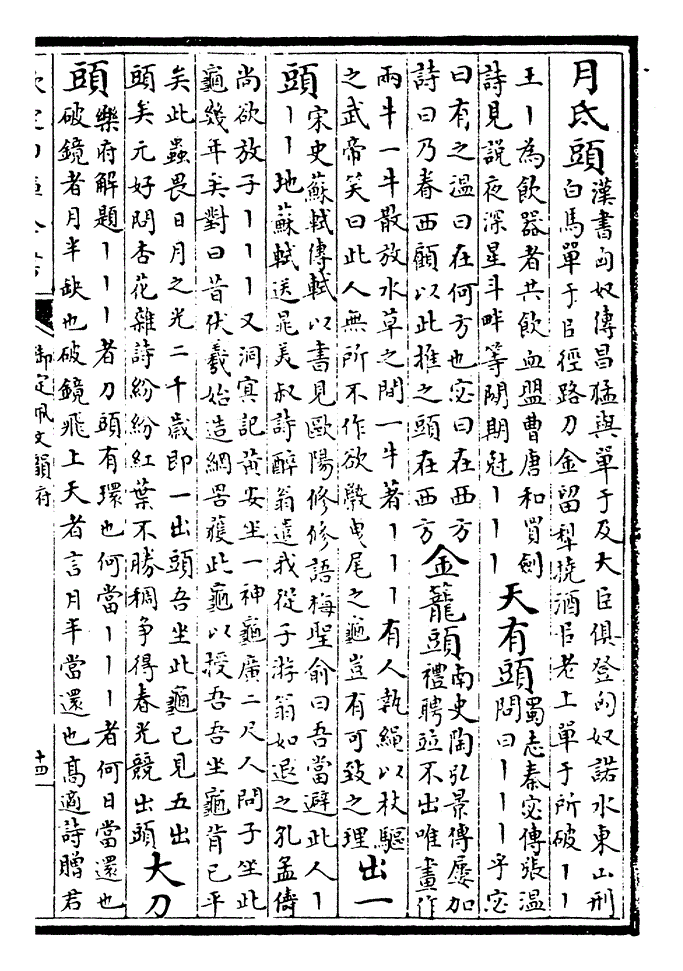 月氐頭漢書匈奴傳昌猛與單于及大臣俱登匈奴諾水東山刑
白馬單于㠯徑路刀金留犁撓酒㠯老上單于所破丨丨
王丨為飲器者共飲血盟曹唐和買劍
詩見說夜深星斗畔等閒期尅丨丨丨
天有頭蜀志秦宓傳張温
問曰丨丨丨乎宓
曰有之温曰在何方也宓曰在西方
詩曰乃眷西顧以此推之頭在西方
金籠頭南史陶弘景傳屢加
禮聘竝不出唯畫作
兩牛一牛散放水草之間一牛著丨丨丨有人執繩以杖驅
之武帝笑曰此人無所不作欲斆曳尾之龜豈有可致之理
出一
頭宋史蘇軾傳軾以書見歐陽修修語梅聖俞曰吾當避此人丨
丨丨地蘇軾送晁美叔詩醉翁遣我從子游翁如退之孔孟儔
尚欲放子丨丨丨又洞㝠記黃安坐一神龜廣二尺人問子坐此
龜幾年矣對曰昔伏羲始造網罟獲此龜以授吾吾坐龜背已平
矣此蟲畏日月之光二千歲即一出頭吾坐此龜已見五出
頭矣元好問杏花雜詩紛紛紅葉不勝稠争得春光競出頭
大刀
頭樂府解題丨丨丨者刀頭有環也何當丨丨丨者何日當還也
破鏡者月半缺也破鏡飛上天者言月半當還也高適詩贈君
御定佩文韻府
十四